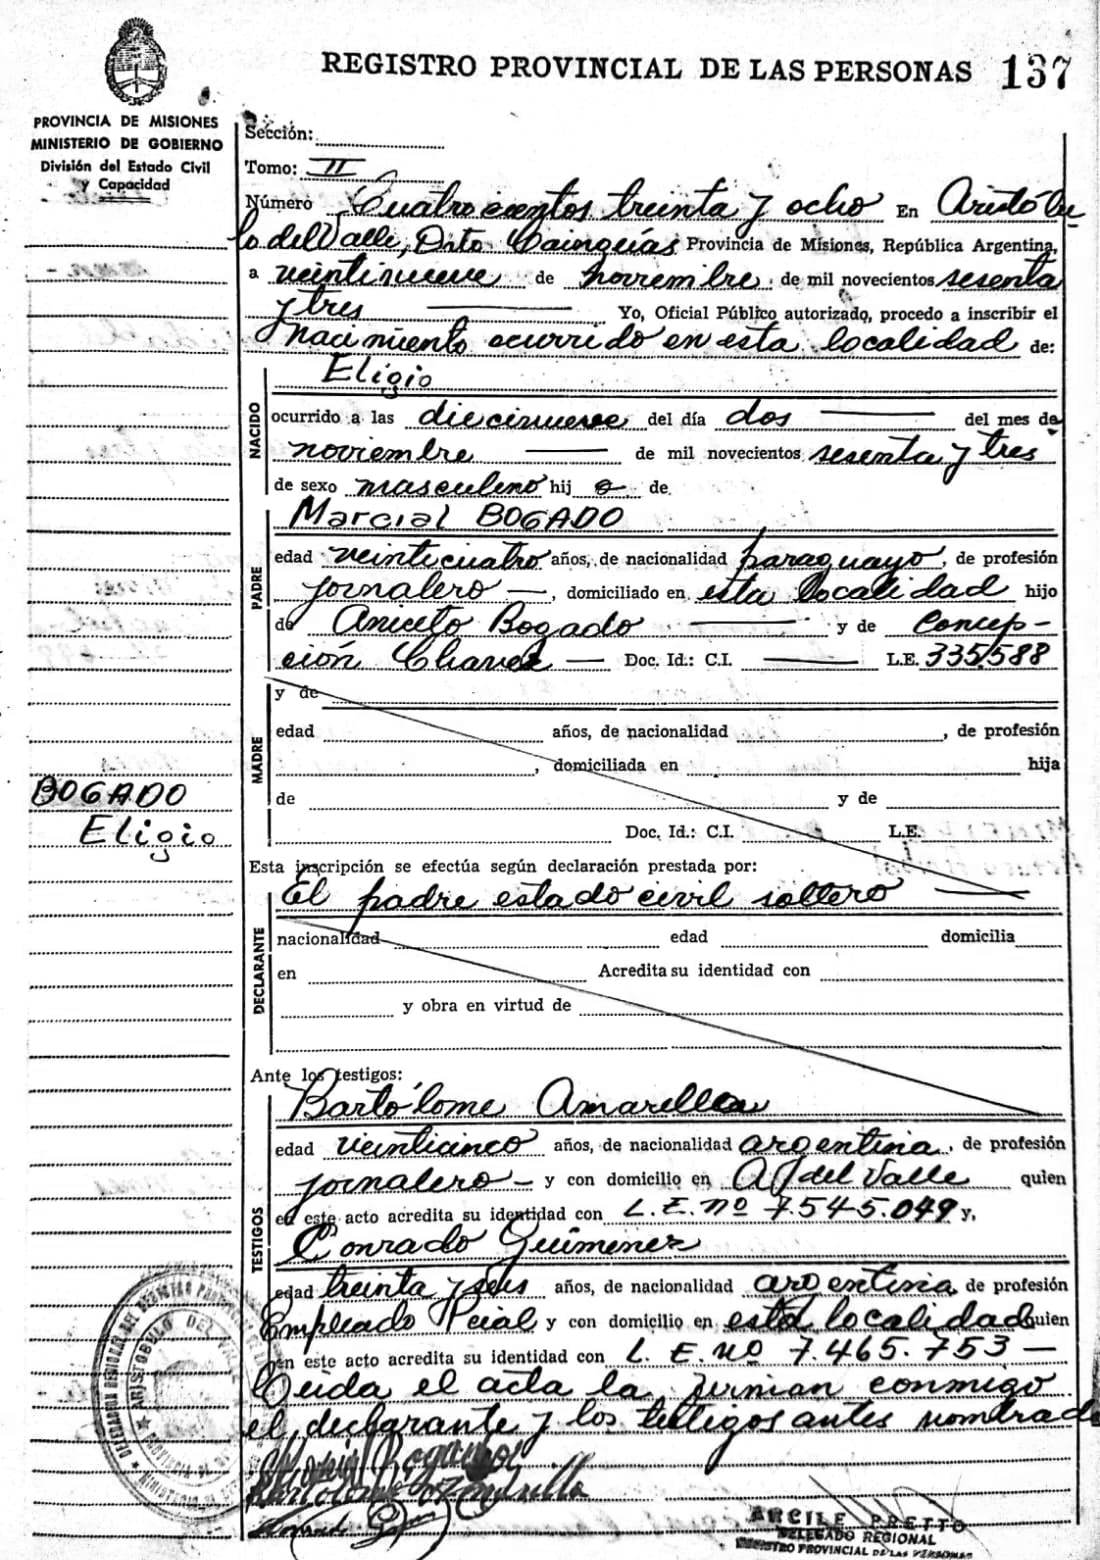 REGISTRO PROVINCIAL DE LAS PERSONAS 137
PROVINCIA DE MISIONES
MINISTERIO DE GOBIERNO
División del Estado Civil
y Capacidad
Sección:
Tomo: II
Número Cuatrocientos treinta y ocho En Aristóbu-
lo del Valle, Drto. Cainguás Provincia de Misiones, República Argentina,
a veintinueve de noviembre de mil novecientos sesenta
y tres Yo, Oficial Público autorizado, procedo a inscribir el
nacimiento ocurrido en esta localidad de:
NACIDO
Eligio
ocurrido a las diecinueve del día dos del mes de
noviembre de mil novecientos sesenta y tres
de sexo masculino hij o de
PADRE
Marcial BOGADO
edad veinticuatro años, de nacionalidad paraguayo, de profesión
jornalero —, domiciliado en esta localidad hijo
de Aniceto Bogado y de Concep-
ción Chavez — Doc. Id.: C.I. — L.E. 335,588
MADRE
y de
edad años, de nacionalidad , de profesión
, domiciliada en hija
de y de
Doc. Id.: C.I. L.E.
BOGADO
Eligio
Esta inscripción se efectúa según declaración prestada por:
El padre estado civil soltero —
DECLARANTE
nacionalidad edad domicilia
en Acredita su identidad con
y obra en virtud de
Ante los testigos:
TESTIGOS
Bartólome Amarella
edad veinticinco años, de nacionalidad argentina, de profesión
jornalero — y con domicilio en A del Valle quien
en este acto acredita su identidad con L.E. nº 7.545.049 y,
Conrado Guimenez
edad treinta y seis años, de nacionalidad argentina de profesión
Empleado Pcial y con domicilio en esta localidad quien
en este acto acredita su identidad con L.E. nº 7.465.753 —
Leida el acta la firman conmigo
el declarante y los testigos antes nombrado
ARCILE PRETTO
DELEGADO REGIONAL
REGISTRO PROVINCIAL DE LAS PERSONAS
ARISTOBULO DEL VALLE